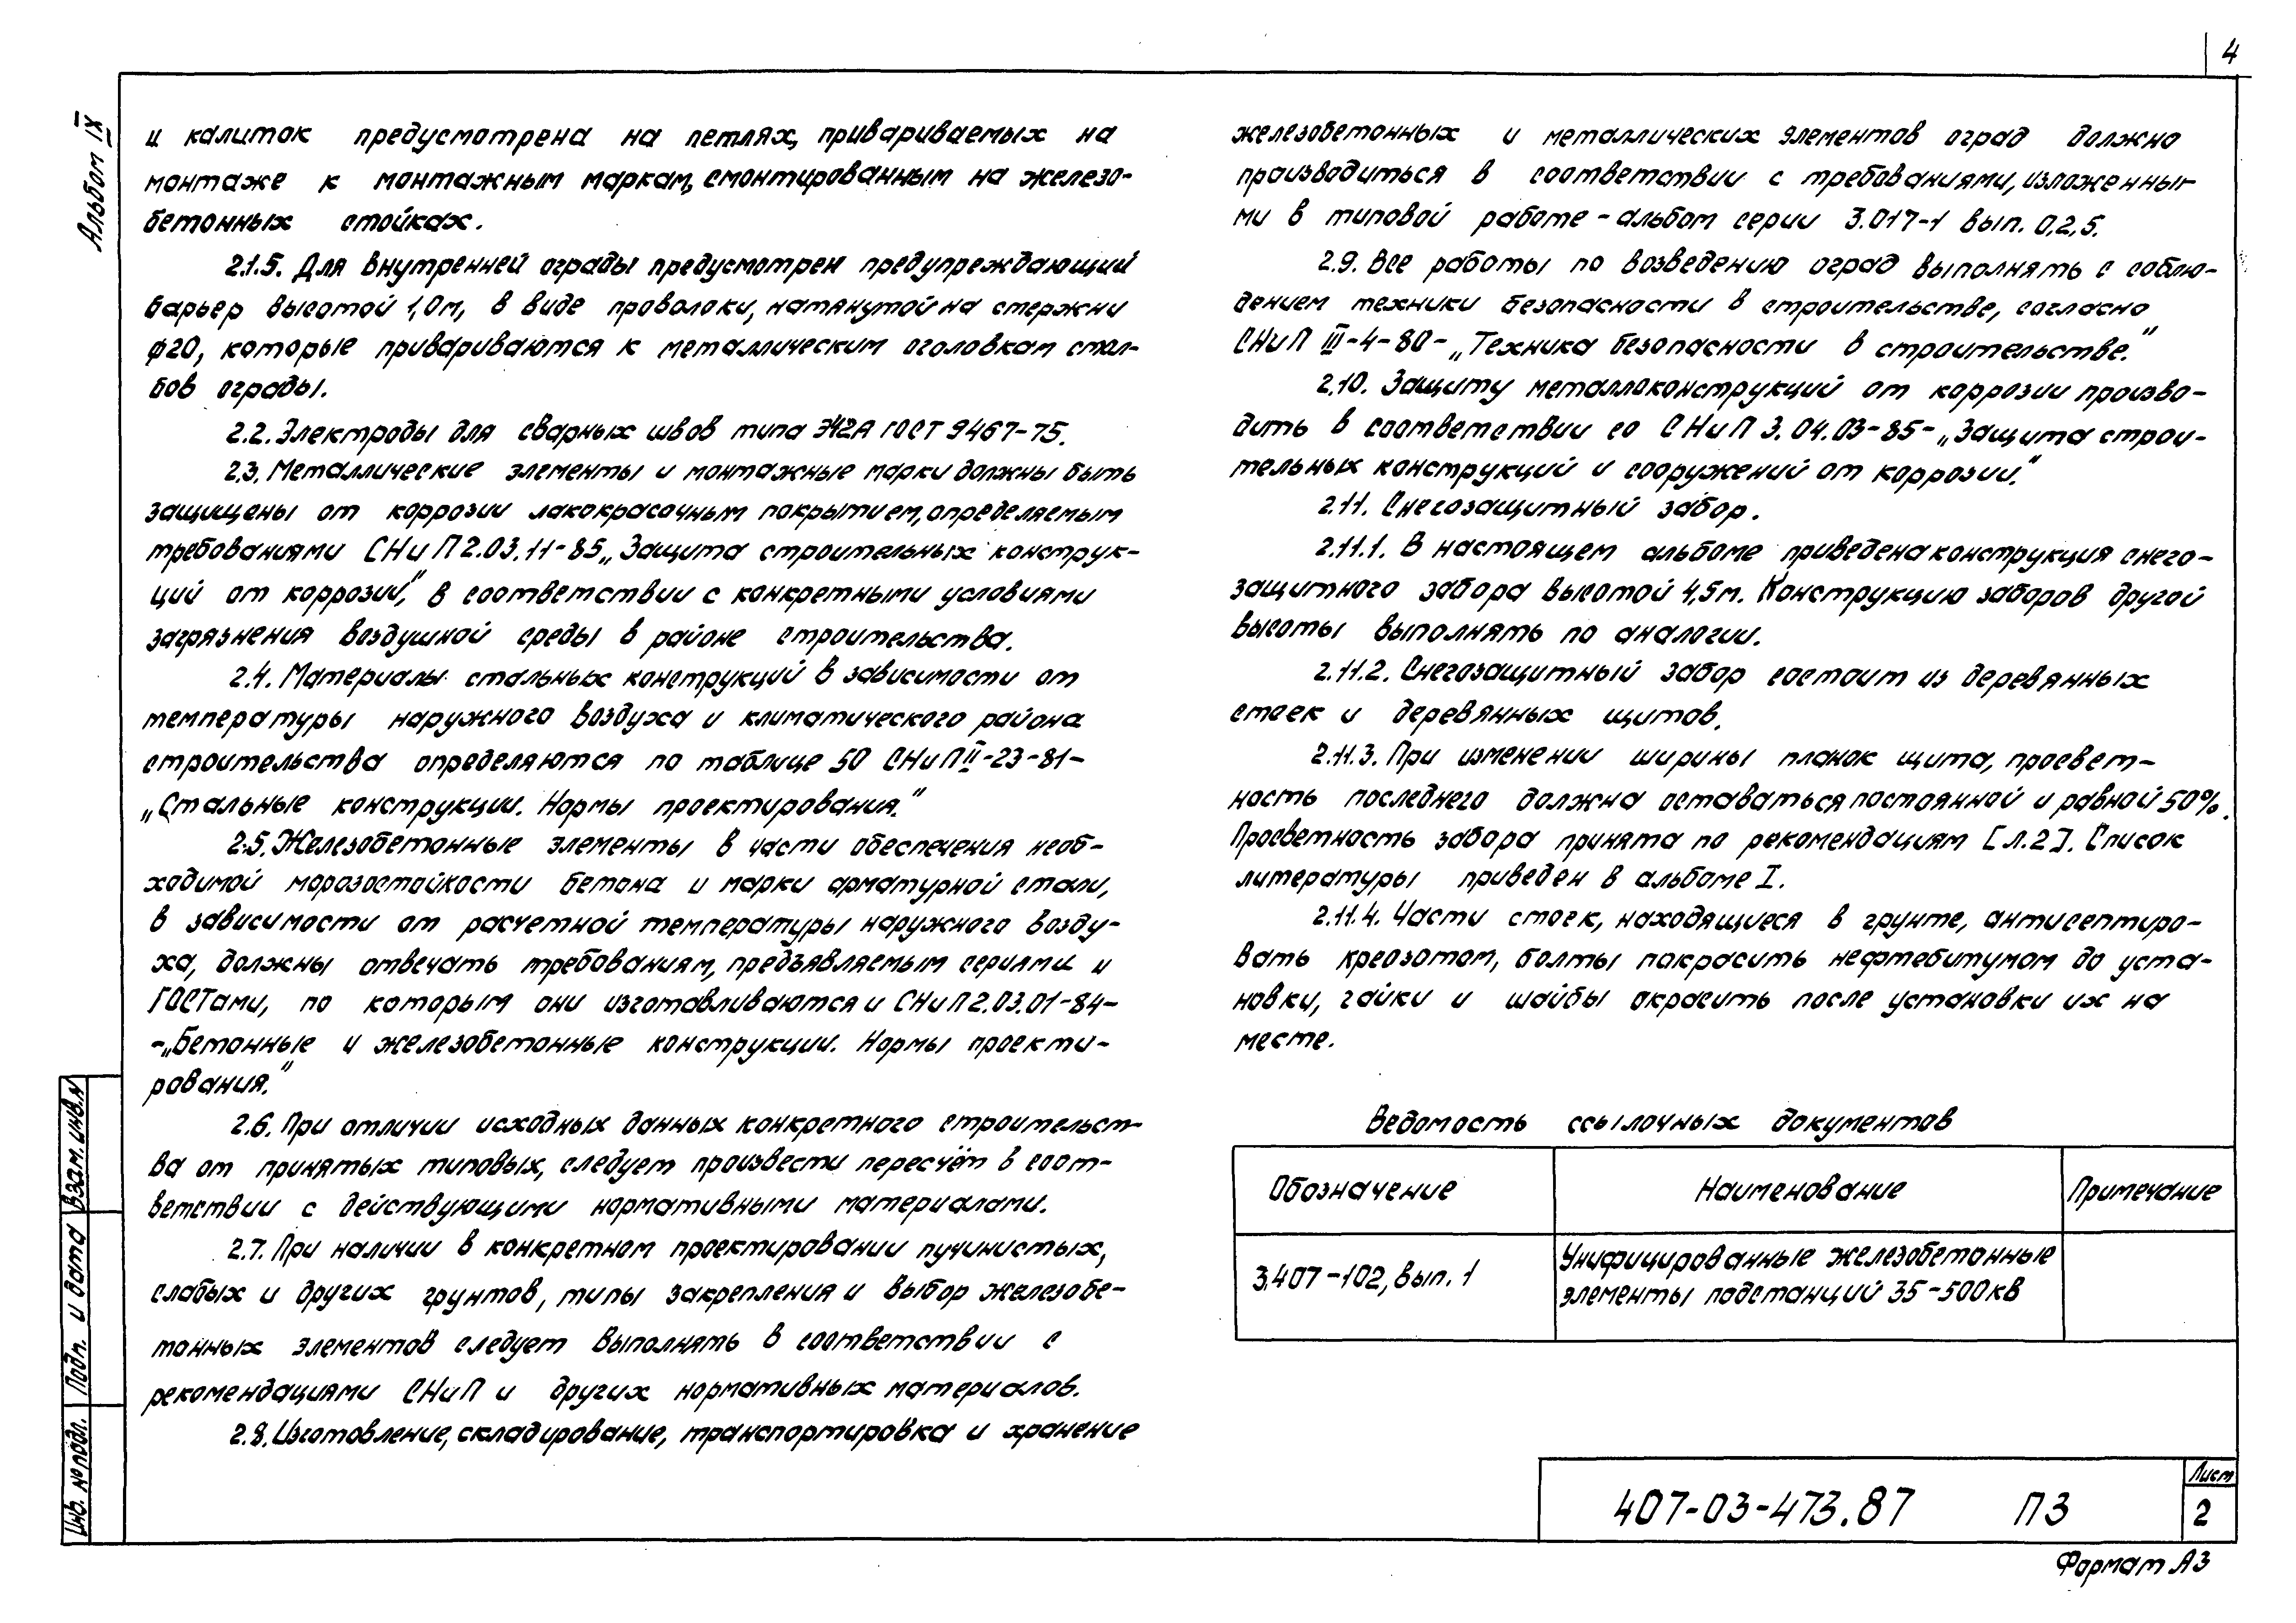 4
Альбом IX
и калиток предусмотрена на петлях, привариваемых на
монтаже к монтажным маркам, смонтированным на железо-
бетонных стойках.
2.1.5. Для внутренней ограды предусмотрен предупреждающий
барьер высотой 1,0м, в виде проволоки, натянутой на стержни
ф20, которые привариваются к металлическим оголовкам стол-
бов ограды.
2.2. Электроды для сварных швов типа Э42А ГОСТ 9467-75.
2.3. Металлические элементы и монтажные марки должны быть
защищены от коррозии лакокрасочным покрытием, определяемым
требованиями СНиП 2.03.11-85 „Защита строительных конструк-
ций от коррозии", в соответствии с конкретными условиями
загрязнения воздушной среды в районе строительства.
2.4. Материалы стальных конструкций в зависимости от
температуры наружного воздуха и климатического района
строительства определяются по таблице 50 СНиП II-23-81-
„Стальные конструкции. Нормы проектирования."
2.5. Железобетонные элементы в части обеспечения необ-
ходимой морозостойкости бетона и марки арматурной стали,
в зависимости от расчетной температуры наружного возду-
ха, должны отвечать требованиям, предъявляемым сериями и
ГОСТами, по которым они изготавливаются и СНиП 2.03.01-84-
-„Бетонные и железобетонные конструкции. Нормы проекти-
рования."
2.6. При отличии исходных данных конкретного строительст-
ва от принятых типовых, следует произвести пересчём в соот-
ветствии с действующими нормативными материалами.
2.7. При наличии в конкретном проектировании пучинистых,
слабых и других грунтов, типы закрепления и выбор железобе-
тонных элементов следует выполнять в соответствии с
рекомендациями СНиП и других нормативных материалов.
2.8. Изготовление, складирование, транспортировка и хранение
железобетонных и металлических элементов оград должно
производиться в соответствии с требованиями, изложенны-
ми в типовой работе - альбом серии 3.017-1 вып. 0,2,5.
2.9. Все работы по возведению оград выполнять с соблю-
дением техники безопасности в строительстве, согласно
СНиП III-4-80- „Техника безопасности в строительстве."
2.10. Защиту металлоконструкций от коррозии произво-
дить в соответствии со СНиП 3.04.03-85-„Защита строи-
тельных конструкций и сооружений от коррозии."
2.11. Снегозащитный забор.
2.11.1. В настоящем альбоме приведена конструкция снего-
защитного забора высотой 4,5м. Конструкцию заборов другой
высоты выполнять по аналогии.
2.11.2. Снегозащитный забор состоит из деревянных
стоек и деревянных щитов.
2.11.3. При изменении ширины планок щита, просвет-
ность последнего должна оставаться постоянной и равной 50%.
Просветность забора принята по рекомендациям [Л.2]. Список
литературы приведен в альбоме I.
2.11.4. Части стоек, находящиеся в грунте, антисептиро-
вать креозотом, болты покрасить нефтебитумом до уста-
новки, гайки и шайбы окрасить после установки их на
месте.
Ведомость ссылочных документов
Обозначение Наименование Примечание
3.407-102, вып. 1 Унифицированные железобетонные
элементы подстанций 35-500кв
Взам. инв. N
Подп. и дата
Инв. № подл.
407-03-473.87 ПЗ
Лист
2
Формат А3